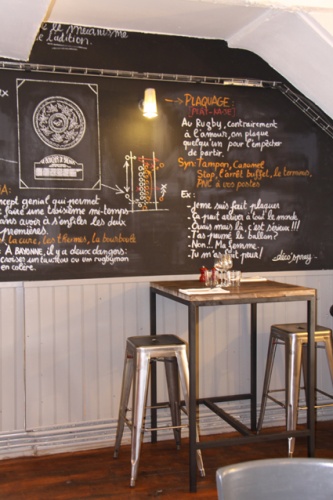 le mécanisme
tradition.
PLAQUAGE :
Au Rugby, contrairement
à l'amour, on plaque
quelqu'un pour l'empêcher
de partir.
Syn: Tampon, Caramel
Stop, l'arrêt buffet, le terminus,
PNC à vos portes
Ex :
- J'me suis fait plaquer
- Ça peut arriver à tout le monde
- Ouais mais là, c'est sérieux!!!
- T'as paumé le ballon?
- Non... Ma femme!
- Tu m'as fait peur!
concept génial qui permet
faire une troisième mi-temps
sans avoir à s'enfiler les deux
premières.
la cure, les thermes, la bourboule
: A BAYONNE, il y a deux dangers:
croiser un taureau ou un rugbyman
en colère.